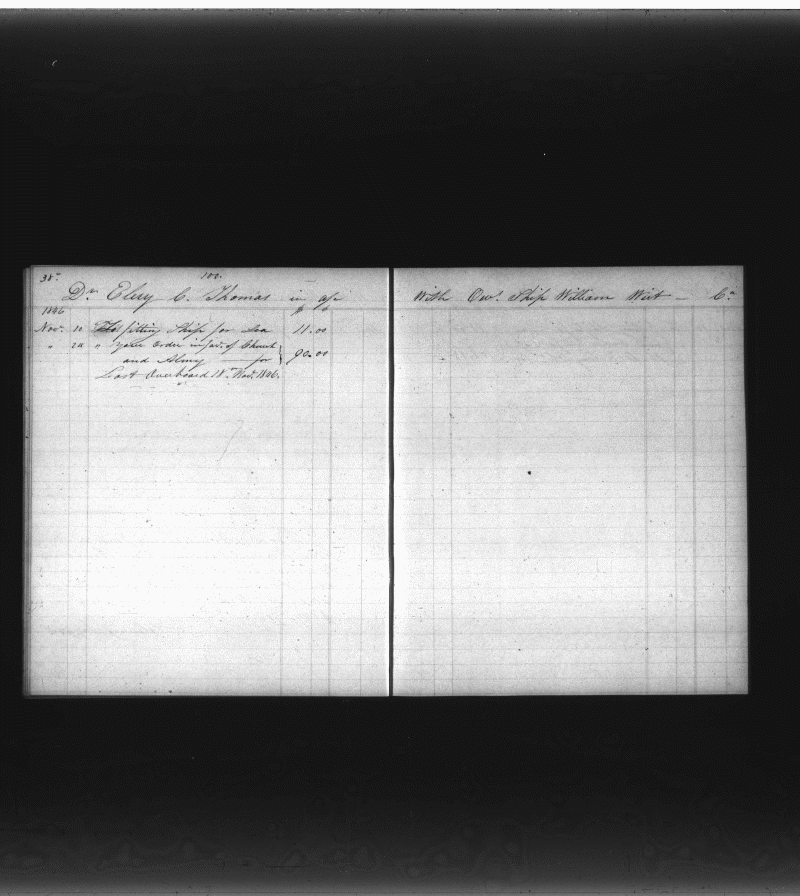 38
100.
Dr. Elery C. Thomas in a/c
With Ows. Ship William Wirt — Cr
1846
Nov. 10 To fitting Ship for Sea 11.00
" " your order in fav. of Church
and Almy — for 90.00
Lost Overboard 18th Nov. 1846.